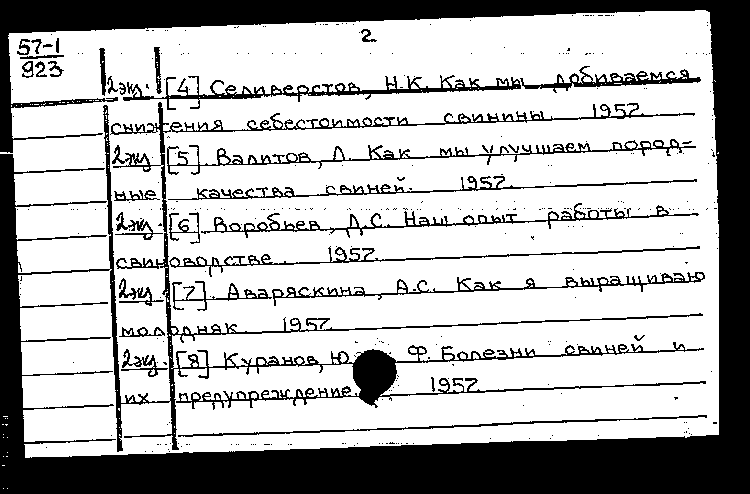 2
57-1
923
2экз. [4] Селиверстов, Н.К. Как мы добиваемся
снижения себестоимости свинины. 1957.
2экз. [5]. Валитов, Л. Как мы улучшаем пород=
ные качества свиней. 1957.
2экз. [6]. Воробьев, Д.С. Наш опыт работы в
свиноводстве. 1957.
2экз. [7]. Аваряскина, А.С. Как я выращиваю
молодняк. 1957.
2экз. [8] Куранов, Ю. Ф. Болезни свиней и
их предупреждение. 1957.